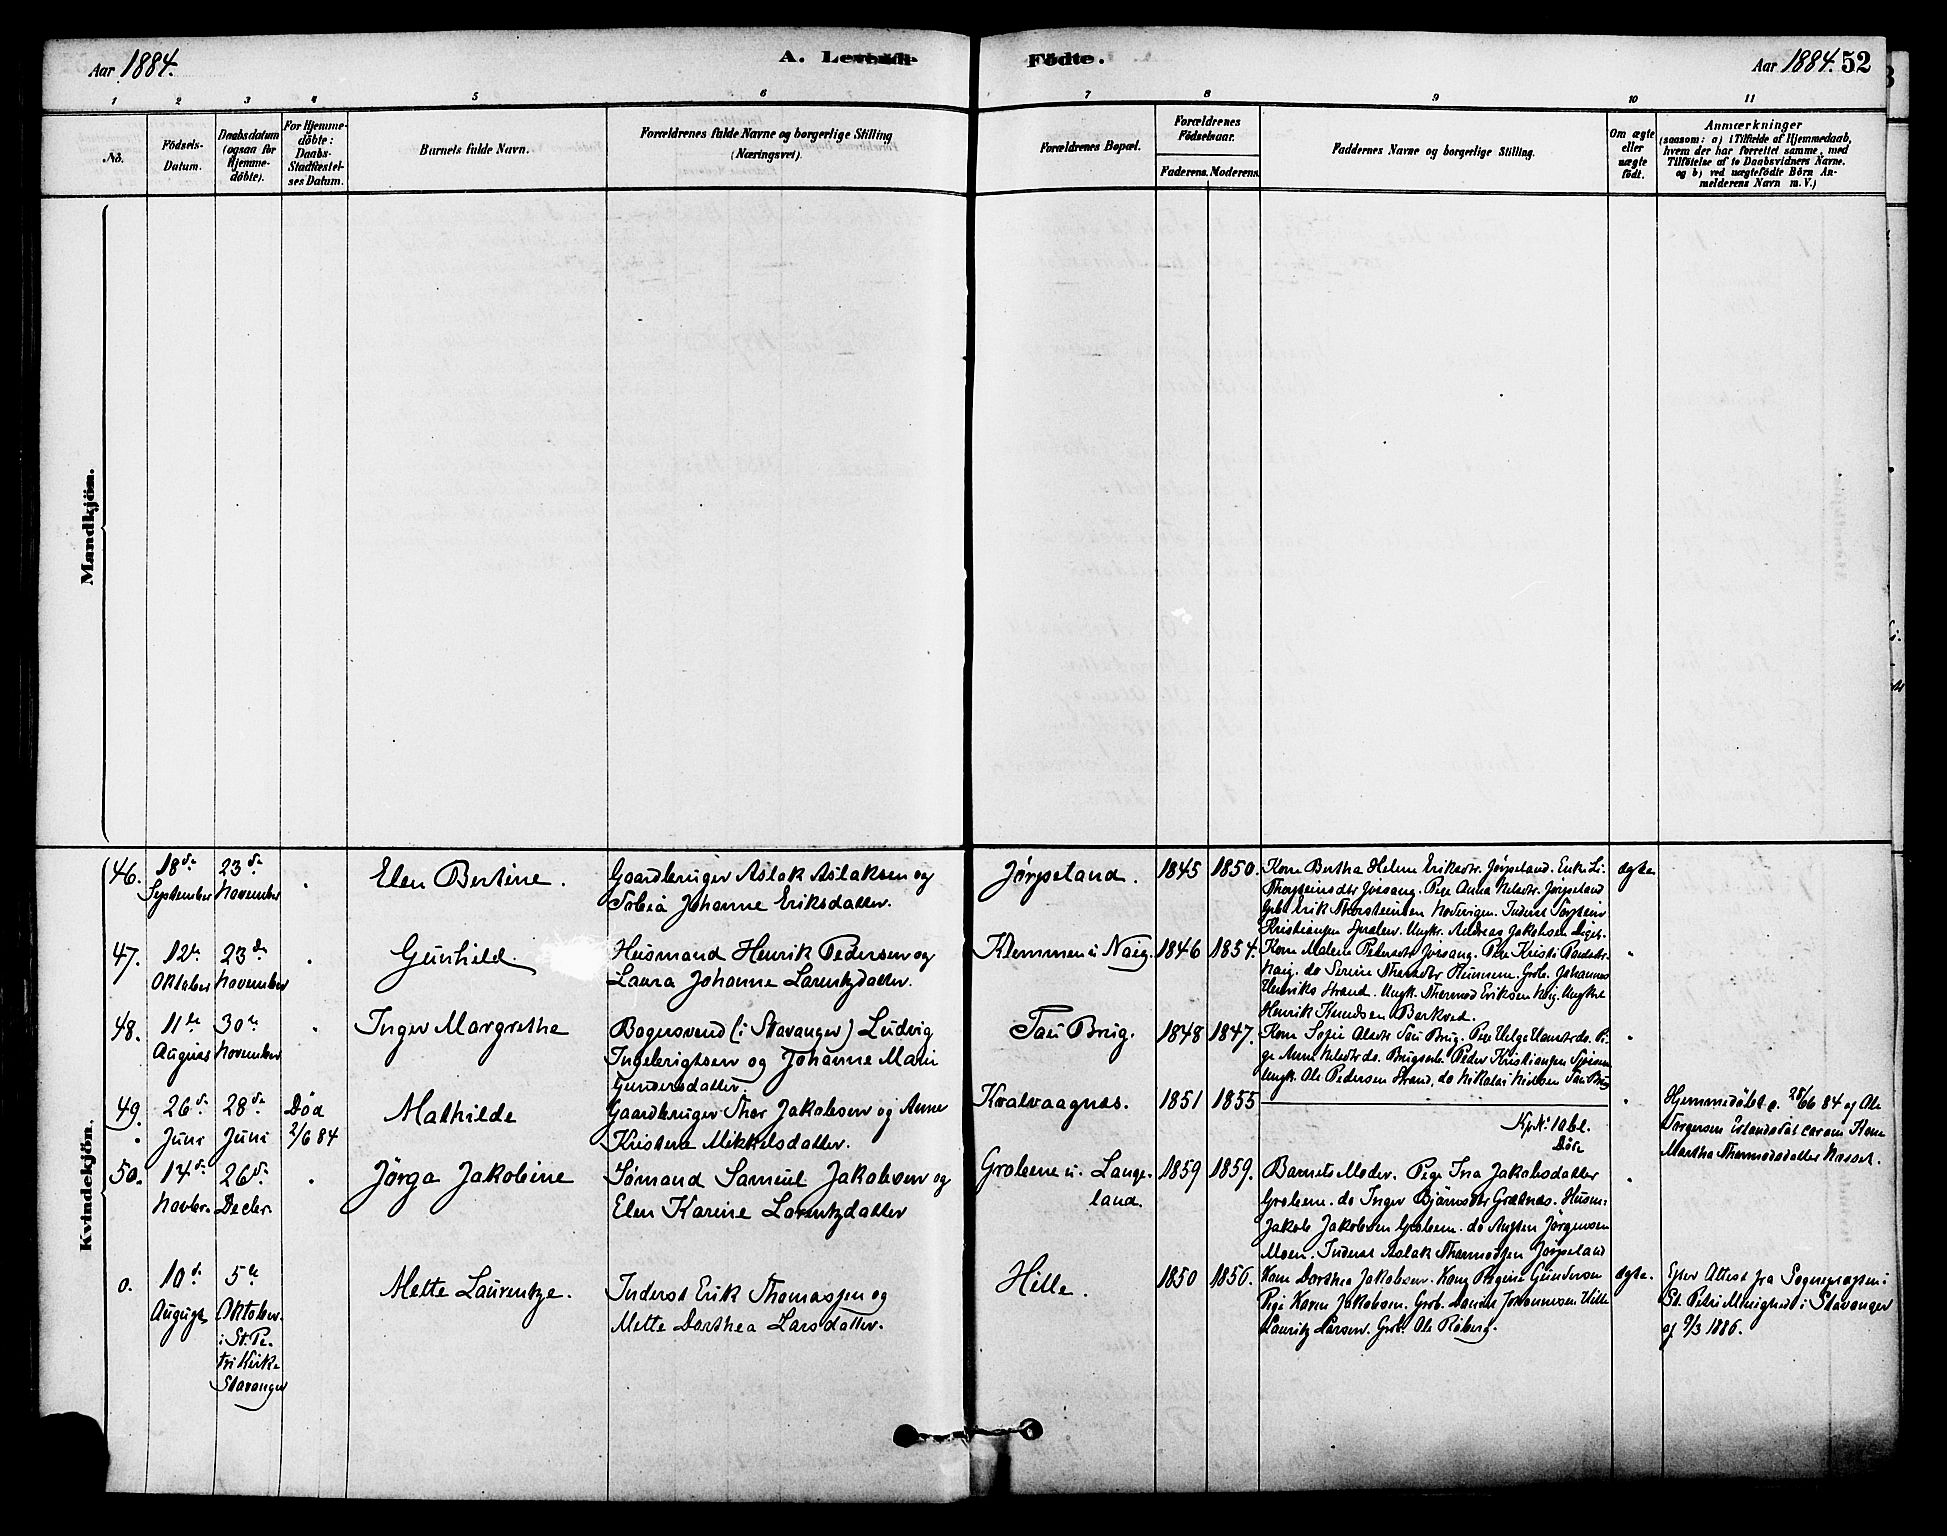 Aar 1884.
A. Levende
Födte.
Aar 1884. 52
1 2 3 4 5 6 7 8 9 10 11
No.
Födsels-
Datum.
Daabsdatum
(ogsaa for
Hjemme-
döbte).
For Hjemme-
döbte:
Daabs-
Stadfæstel-
ses Datum.
Barnets fulde Navn.
Forældrenes fulde Navne og borgerlige Stilling
(Næringsvei).
Forældrenes Bopæl.
Forældrenes
Födselsaar.
Faderens. Moderens.
Faddernes Navne og borgerlige Stilling.
Om ægte
eller
uægte
födt.
Anmærkninger
(saasom: a) i Tilfælde af Hjemmedaab,
hvem der har forrettet samme, med
Tilföielse af to Daabsvidners Navne.
og b) ved uægtefödte Börn An-
melderens Navn m. V.)
Mandkjön.
Kvindekjön.
46.
18de
September
23de
November
Elen Bertine.
Gaardbruger Aslak Aslaksen og
Tobia Johanne Eriksdatter.
Jørpeland.
1845
1850.
Kone Bertha Helene Eriksdtr Jørpeland. Enke Li.
Thorsteinsdtr Jøssang. Pige Anna Nelsdtr. Jørpeland
Grbr Erik Thorsteinsen
Kristiansen Ungkr. Andreas Jakobsen
ægte
47.
12te
Oktober
23de
November
Gunhild.
Husmand Henrik Pedersen og
Laura Johanne Larentzdatter.
Klemmen u Naig.
1846
1854.
Kone Malene Pedersdtr Jøssang. Pige Kristi
Naig. do Serine Johannes
Henriks Strand. Ungk. Thormod Eriksen Naig. Ungkrl
Henrik Knudsen Barkved.
"
48.
11te
August
30te
November
Inger Margrethe
Bagersvend (i Stavanger) Ludvig
Ingebrigtsen og Johanne Marie
Gundersdatter.
Tau Brug.
1848
1847.
Kone Sofie Olsdtr Tau Brug. Pige Helga do. Pi-
ge Anne Nelsdtr do. Peder Kristiansen
Ungk. Ole Pedersen Strand, do Nikolai Nielsen Tau Brug
"
49.
26de
Juni
28de
Juni
Død
2/6 84
Mathilde
Gaardbruger Thor Jakobsen og Anne
Kristene Mikkelsdatter.
Kvalvaagnæs.
1851
1855
Døde
"
Hjemmedøbt d. 28/6 84 af Ole
Torgersen
Martha Thormodsdatter
50.
14de
Novbr.
26de
Decbr.
Jørga Jakobine
Sømand Samuel Jakobsen og
Elen Karine Larentzdatter
Grobene u. Lange-
land.
1859
1859.
Barnets Moder. Pige Ina Jakobsdatter
Grobene. do Inger Bjørnsdtr Husm:
Jakob Jakobsen Grobene. do Jørgensen
Moen. Inderst Aslak Thormodsen Jørpeland
"
0.
10de
August
5te
Oktober
i St. Pe-
tri Kirke
Stavanger
Mette Laurentze.
Inderst Erik Thomassen og
Mette Dorthea Larsdatter.
Hille.
1850
1856.
Kone Dorthea Jakobsen. Kone Regine Gundersen
Pige Karen Jakobsen. Grb. Daniel Johannesen Hille
Lauritz Larsen. Grbr. Ole Røberg.
ægte.
Efter Attest fra Sognepræsten i
St. Petri Menighed i Stavanger
af 9/3 1886.